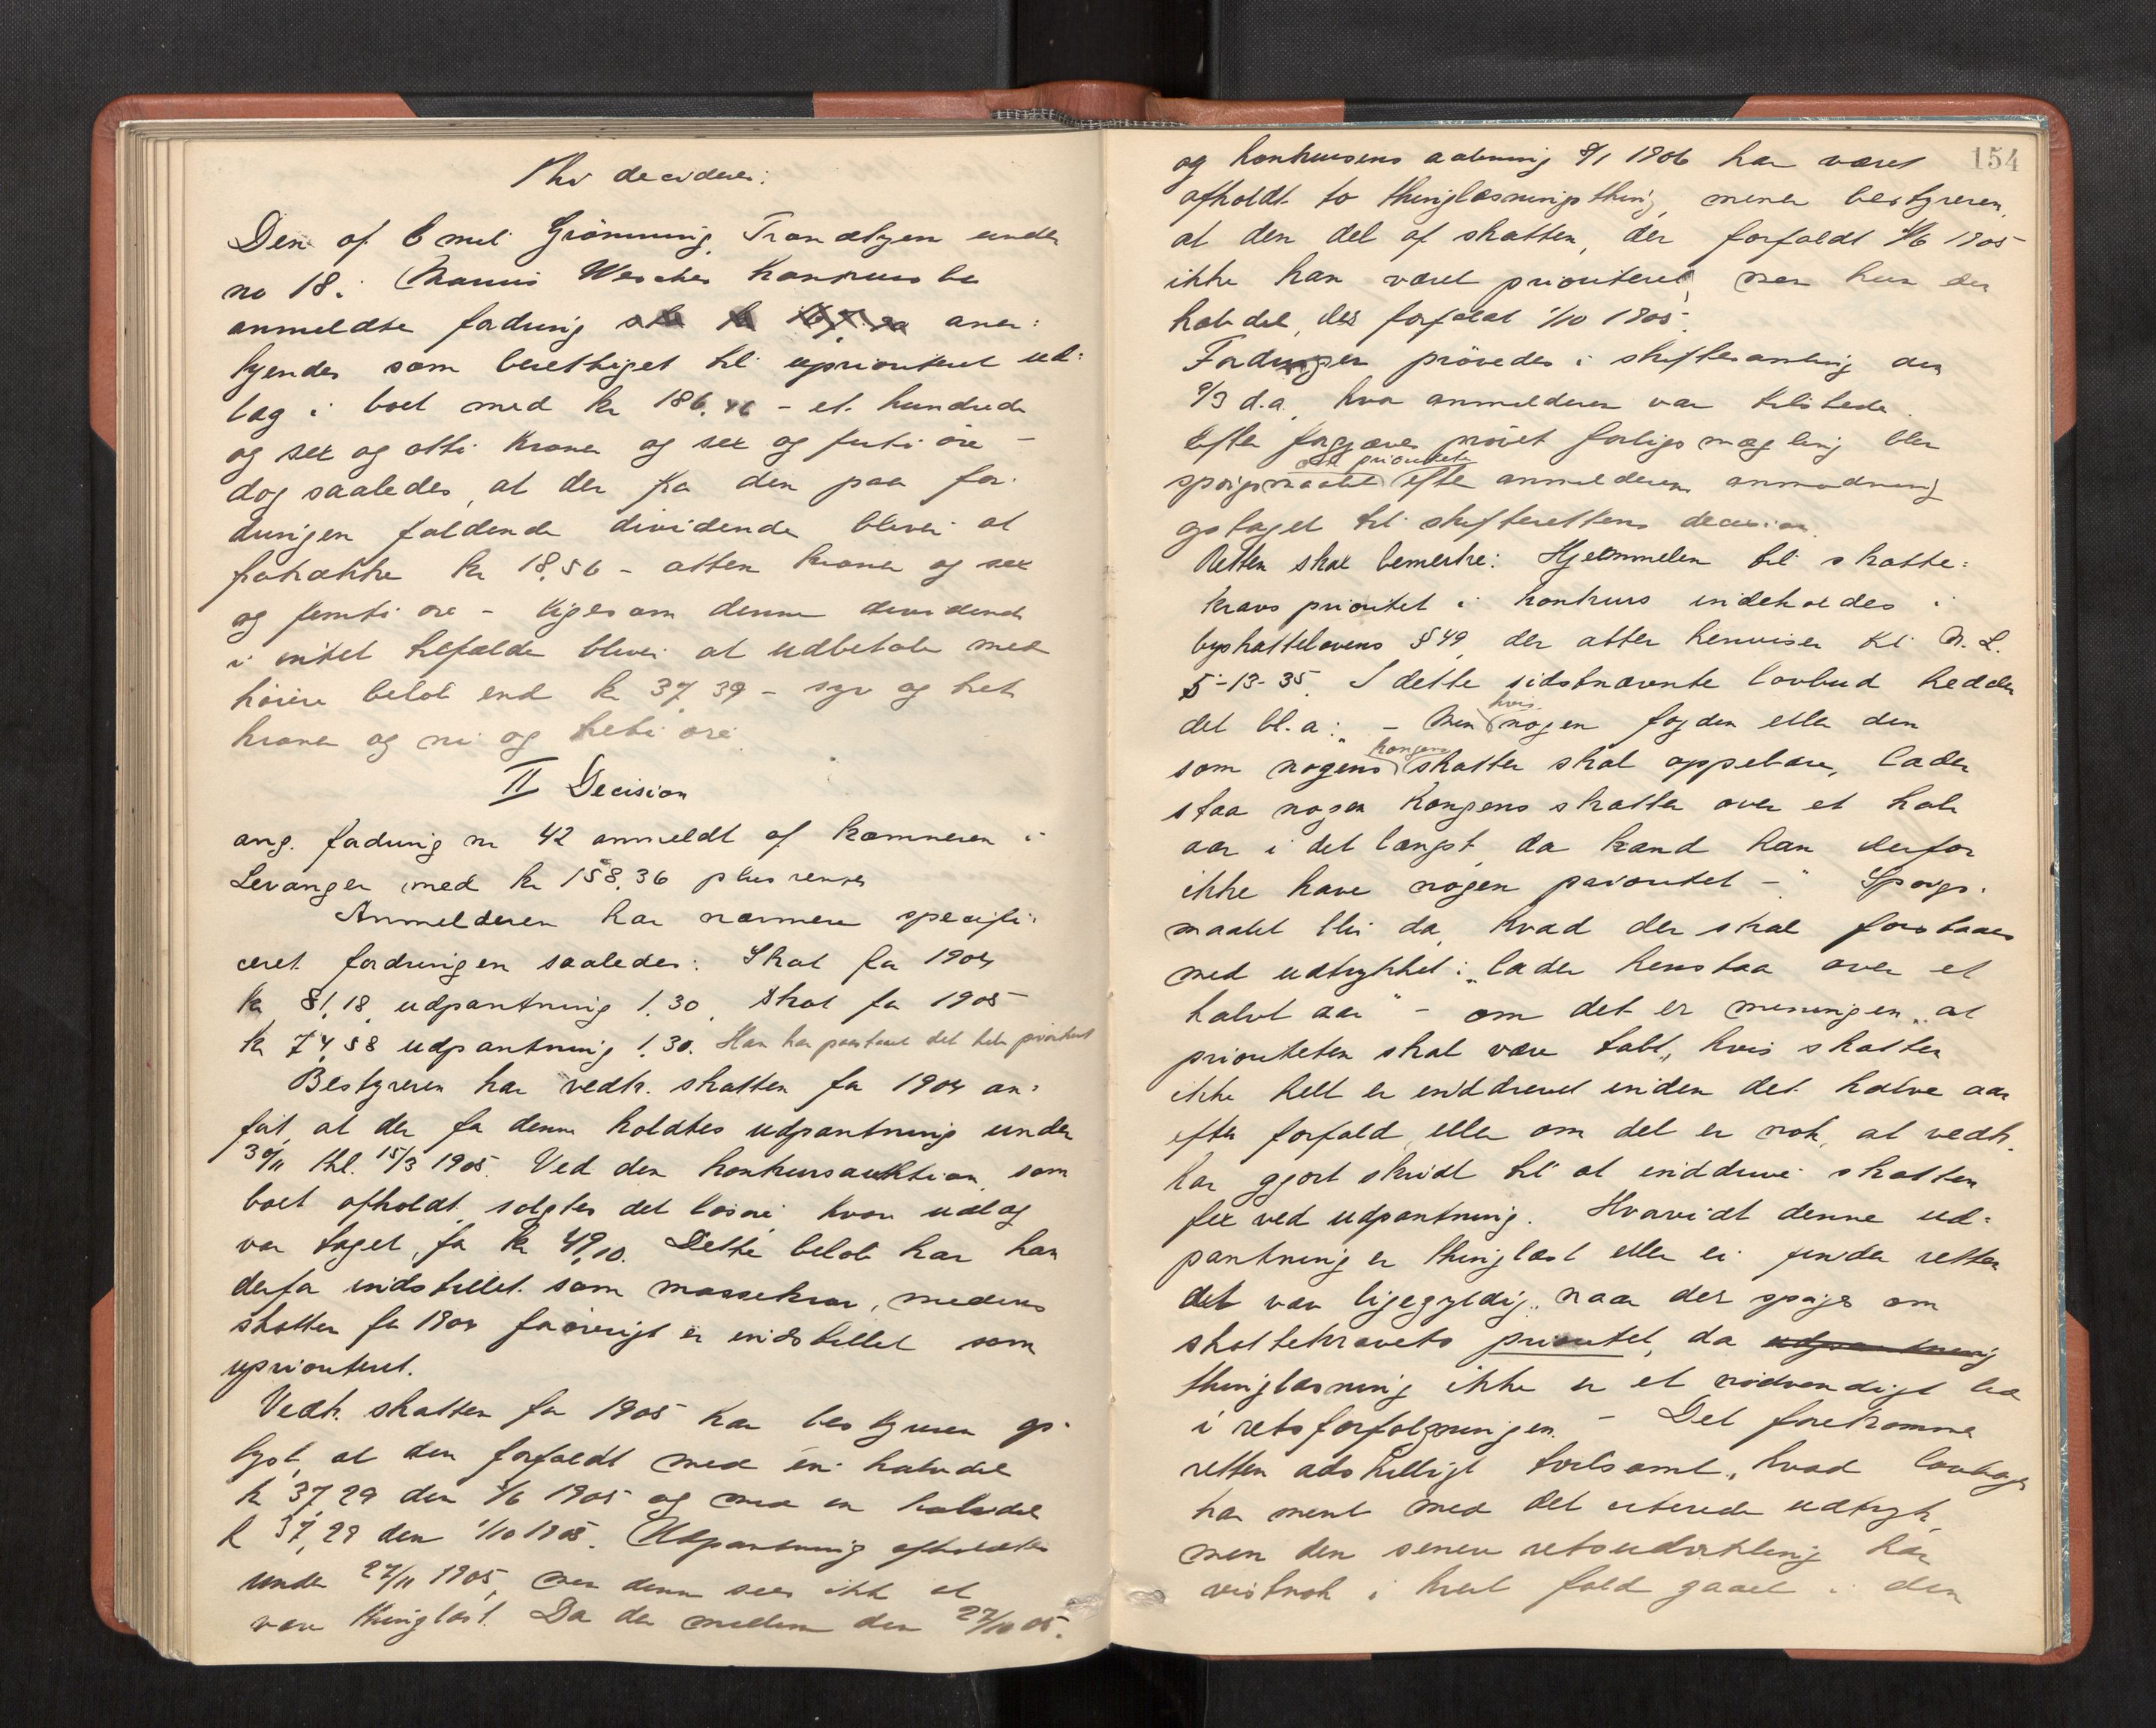 Thi decideres:
Den af Emil Grönning, Trondhjem under
no 18 i Marius Wesches konkursbo
anmeldte fordring aner:
kjendes som berettiget til uprioritert ud:
læg i boet med kr 186,46 - et hundrede
og sex og otti kroner og sex og furti øre -
dog saaledes, at der fra den paa for:
dringen faldende dividende bliver at
fratrække kr 18,56 - atten kroner og sex
og femti øre - ligesom denne dividende
i intet tilfælde bliver at udbetale med
høiere beløb end kr 37,39 - syv og treti
kroner og ni og treti øre
II Decision
ang. fordring nr 42 anmeldt af kæmneren i
Levanger med kr 158,36 plus renter
Anmelderen har nærmere specifi:
ceret fordringen saaledes: Skat for 1904
kr 81,18, udpantning 1.30, Skat for 1905
kr 74,58 udpantning 1.30. Han har paastaaet det hele prioritert
Bestyreren har vedk. skatten for 1904 an:
ført, at der for denne holdtes udpantning under
30/11 thl. 15/3 1905. Ved den konkursauktion, som
boet afholdt, solgtes det løsøre, hvori udlæg
var taget, for kr 49,10. Dette beløb har han
derfor indstillet som massekrav, medens
skatten for 1904 forøvrigt er indstillet som
uprioritert.
Vedk. skatten for 1905 har bestyreren op:
lyst, at den forfaldt med én halvdel
kr 37,29 den 1/6 1905 og med en halvdel
kr 37,29 den 1/10 1905. Udpantning afholdtes
under 27/11 1905, men denne sees ikke at
være thinglæst. Da der mellem den 27/10 05.
154
og konkursens aabning 8/1 1906 har været
afholdt to thinglæsningsthing, mener bestyreren,
at den del af skatten, der forfaldt 1/6 1905
ikke kan være prioriteret, men kun den
halvdel, der forfaldt 1/10 1905.
Fordringen prövedes i skiftesamling den
9/3 d.a. hvor anmelderen var tilstede.
Efter forgjæves prövet forligsmægling blev
om prioritet
spörgsmaalet efter anmelderens anmodning
optaget til skifterettens decision.
Retten skal bemerke: Hjemmelen til skatte:
kravs prioritet i konkurs indeholdes i
byskattelovens § 49, der atter henviser til N.L.
5-13-35. I dette sidstnævnte lovbud hedder
hvis
det bl.a: „ - Men nogen fogden eller den
kongens
som nogens skatter skal oppebære, lader
staa nogen Kongens skatter over et halv
aar i det længst, da kand han derfor
ikke have nogen prioritet -“ Spörgs:
maalet blir da, hvad der skal forstaaes
med udtrykket: „lader henstaa over et
halvt aar“ - om det er meningen, at
prioriteten skal være tabt, hvis skatten
ikke helt er inddrevet inden det halve aar
efter forfald, eller om det er nok, at vedk.
har gjort skridt til at inddrive skatten
fex ved udpantning. Hvorvidt denne ud:
pantning er thinglæst eller ei finder retten
det være ligegyldig, naar der spörges om
skattekravets prioritet, da udpantning
thinglæsning ikke er et nödvendigt led
i retsforfølgningen. - Det forekommer
retten adskilligt tvilsomt, hvad lovbogen
har ment med det citerede udtryk,
men den senere retsudvikling har
vistnok i hvert fald gaaet i den